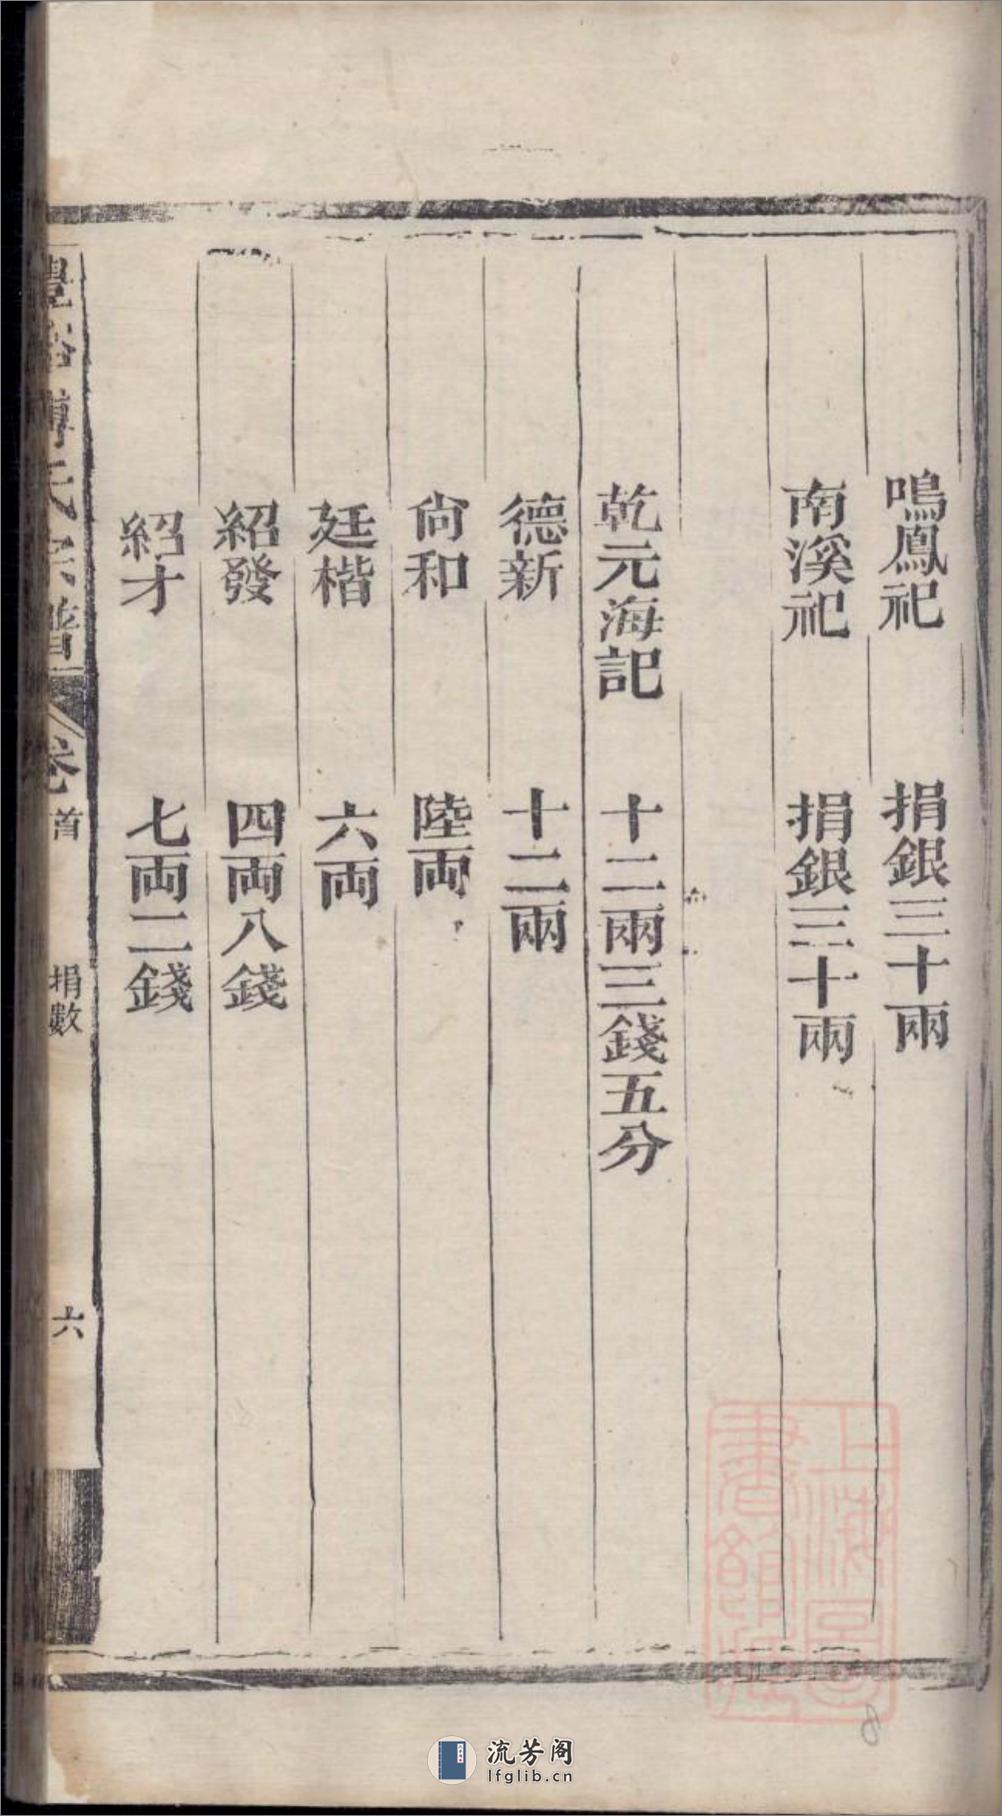 鳴鳳祀　捐銀三十兩
南溪祀　捐銀三十兩
乾元海記　十二兩三錢五分
德新　十二兩
尙和　陸両
廷楷　六両
紹發　四両八錢
紹才　七両二錢
氏宗譜
卷首　捐數　六
上海圖書館藏
8
流芳阁
lfglib.cn